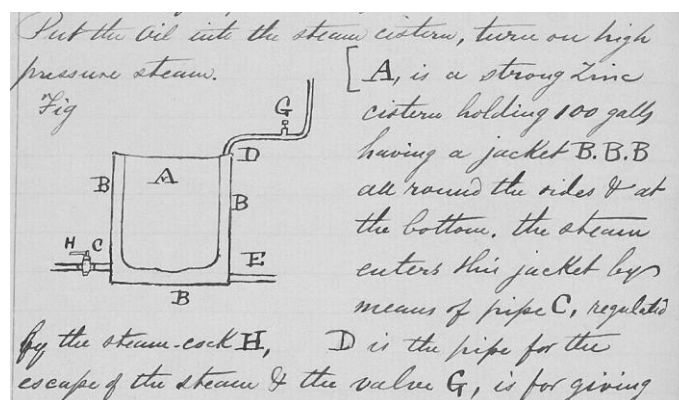 Put the Oil into the steam cistern, turn on high
pressure steam.
[A, is a strong Zinc
Fig
cistern holding 100 galls
having a jacket B.B.B
all round the sides & at
the bottom. the steam
enters this jacket by
means of pipe C, regulated
by the steam-cock H, D is the pipe for the
escape of the steam & the valve G, is for giving
G
D
A
B
B
H C
E
B